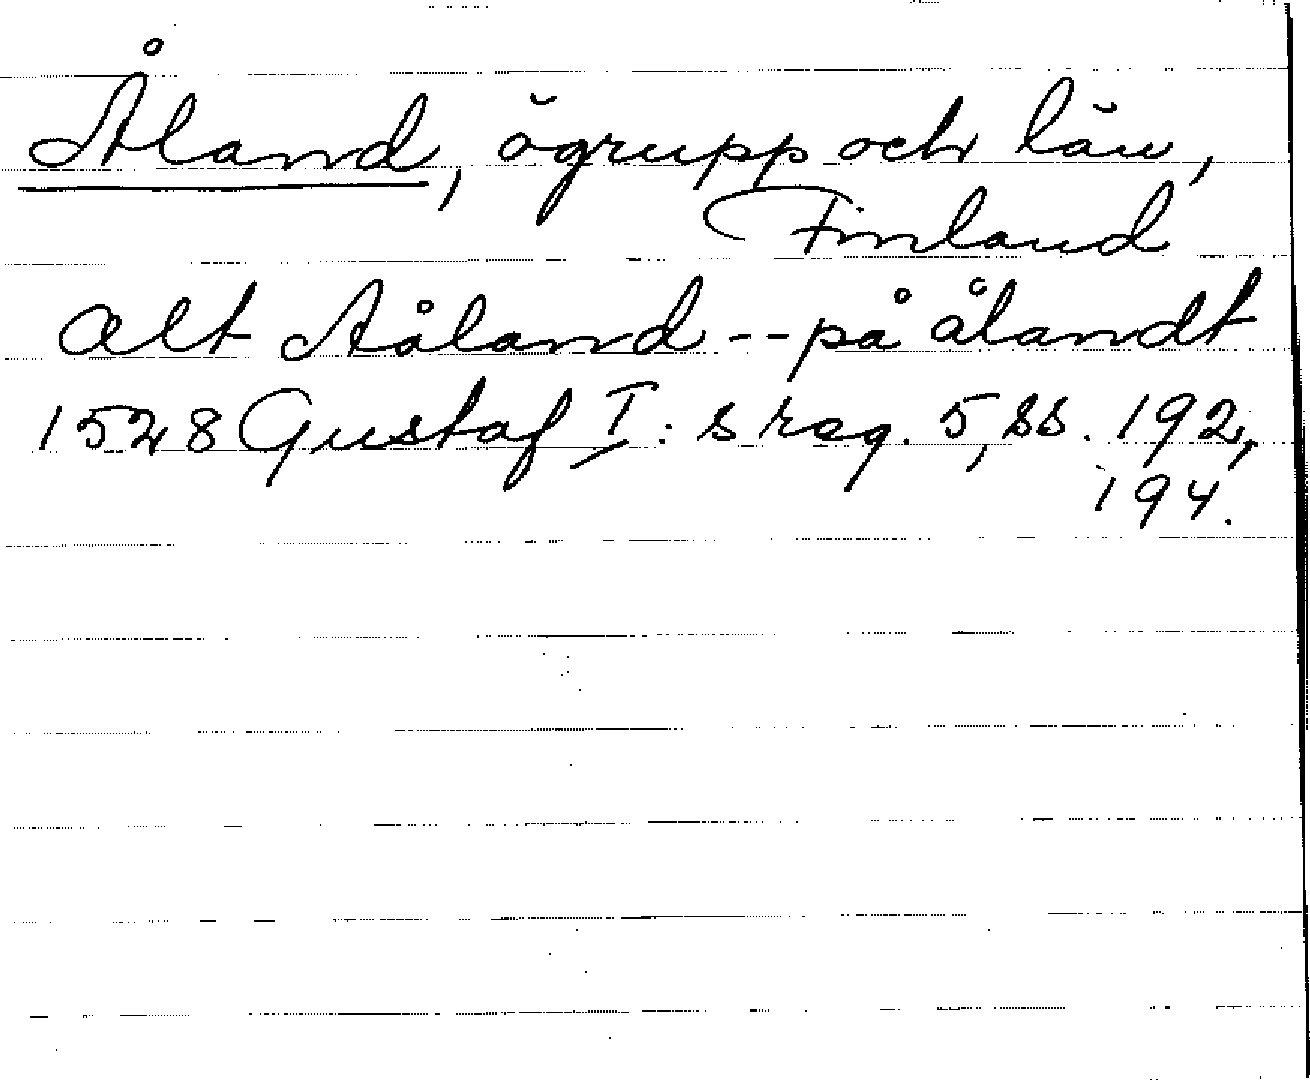 Åland, ögrupp och län,
Finland
alt Aåland -- på ålandt
1528 Gustaf I:s reg. 5, ss. 192,
194.